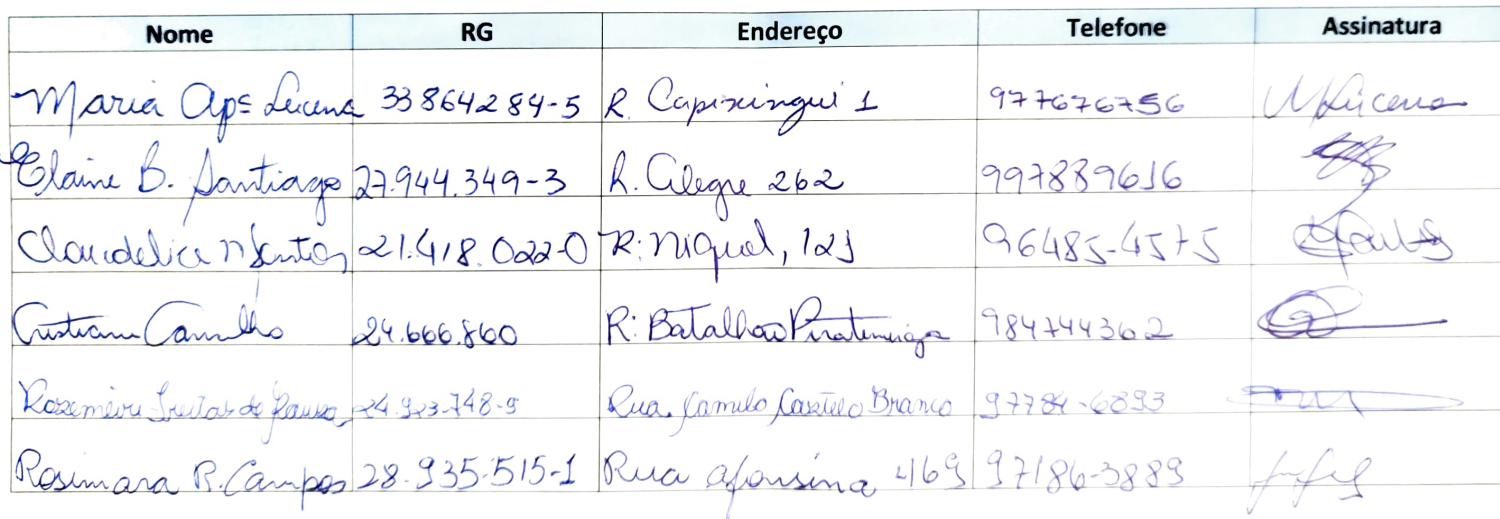 Nome RG Endereço Telefone Assinatura
Maria Apª Lucena 33864284-5 R. Capixingui 1 977676756 MLucena
Elaine B. Santiago 27.944.349-3 R. Alegre 262 997889616
Claudelice M Santos 21.418.022-0 R: Niquel, 121 96485-4575
Cristiane Carvalho 24.666.860 R: Batalhao Piratininga 984744362
Rosemeire Freitas de Souza 24.923.748-9 Rua Camilo Castelo Branco 97784-6893
Rosimara R. Campos 28.935.515-1 Rua afonsina 469 97186-3889